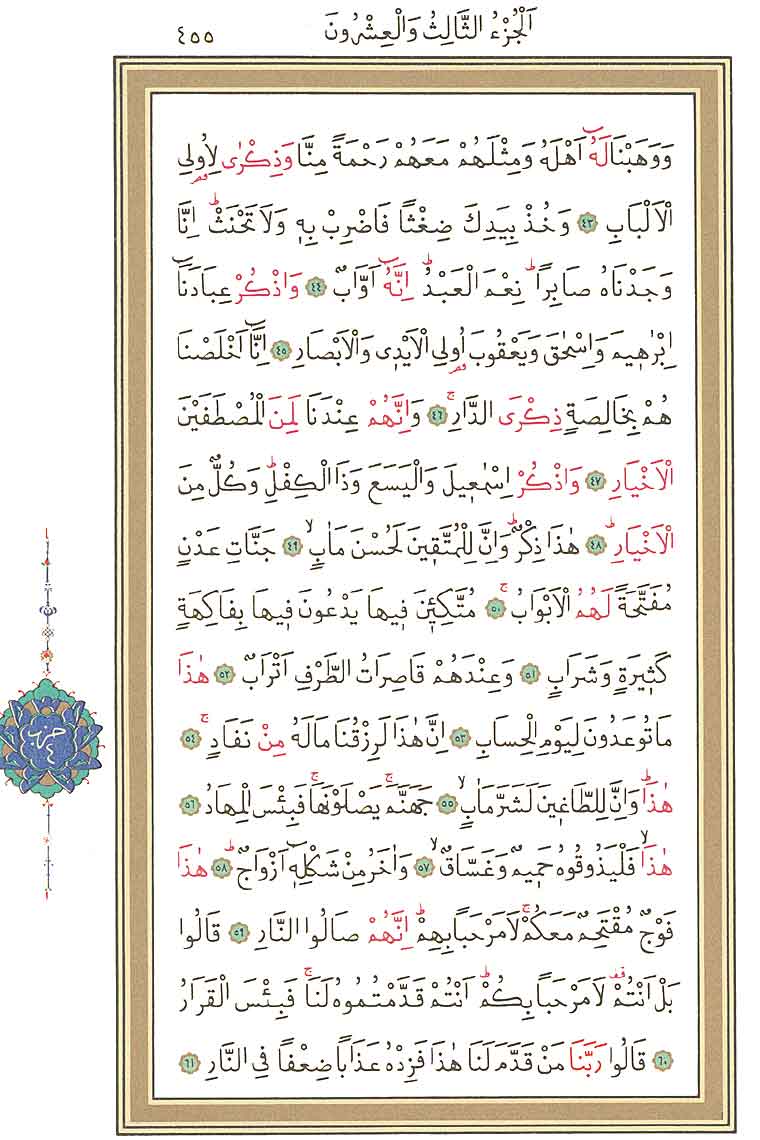 اَلْجُزْءُ الثَّالِثُ وَالْعِشْرُونَ
٤٥٥
وَوَهَبْنَا لَهُٓ اَهْلَهُ وَمِثْلَهُمْ مَعَهُمْ رَحْمَةً مِنَّا وَذِكْرٰى لِاُولِي
الْاَلْبَابِ ﴿٤٣﴾ وَخُذْ بِيَدِكَ ضِغْثًا فَاضْرِبْ بِهٖ وَلَا تَحْنَثْؕ اِنَّا
وَجَدْنَاهُ صَابِرًاؕ نِعْمَ الْعَبْدُؕ اِنَّهُٓ اَوَّابٌ ﴿٤٤﴾ وَاذْكُرْ عِبَادَنَٓا
اِبْرٰهٖيمَ وَاِسْحٰقَ وَيَعْقُوبَ اُولِي الْاَيْدٖي وَالْاَبْصَارِ ﴿٤٥﴾ اِنَّٓا اَخْلَصْنَا
هُمْ بِخَالِصَةٍ ذِكْرَى الدَّارِۚ ﴿٤٦﴾ وَاِنَّهُمْ عِنْدَنَا لَمِنَ الْمُصْطَفَيْنَ
الْاَخْيَارِ ﴿٤٧﴾ وَاذْكُرْ اِسْمٰعٖيلَ وَالْيَسَعَ وَذَا الْكِفْلِؕ وَكُلٌّ مِنَ
الْاَخْيَارِؕ ﴿٤٨﴾ هٰذَا ذِكْرٌؕ وَاِنَّ لِلْمُتَّقٖينَ لَحُسْنَ مَاٰبٍۙ ﴿٤٩﴾ جَنَّاتِ عَدْنٍ
مُفَتَّحَةً لَهُمُ الْاَبْوَابُۚ ﴿٥٠﴾ مُتَّكِـٖٔينَ فٖيهَا يَدْعُونَ فٖيهَا بِفَاكِهَةٍ
كَثٖيرَةٍ وَشَرَابٍ ﴿٥١﴾ وَعِنْدَهُمْ قَاصِرَاتُ الطَّرْفِ اَتْرَابٌ ﴿٥٢﴾ هٰذَا
مَا تُوعَدُونَ لِيَوْمِ الْحِسَابِ ﴿٥٣﴾ اِنَّ هٰذَا لَرِزْقُنَا مَا لَهُ مِنْ نَفَادٍۚ ﴿٥٤﴾
هٰذَاؕ وَاِنَّ لِلطَّاغٖينَ لَشَرَّ مَاٰبٍۙ ﴿٥٥﴾ جَهَنَّمَۚ يَصْلَوْنَهَاۚ فَبِئْسَ الْمِهَادُ ﴿٥٦﴾
هٰذَاۙ فَلْيَذُوقُوهُ حَمٖيمٌ وَغَسَّاقٌۙ ﴿٥٧﴾ وَاٰخَرُ مِنْ شَكْلِهٖٓ اَزْوَاجٌؕ ﴿٥٨﴾ هٰذَا
فَوْجٌ مُقْتَحِمٌ مَعَكُمْۚ لَا مَرْحَبًا بِهِمْؕ اِنَّهُمْ صَالُوا النَّارِ ﴿٥٩﴾ قَالُوا
بَلْ اَنْتُمْ لَا مَرْحَبًا بِكُمْؕ اَنْتُمْ قَدَّمْتُمُوهُ لَنَاۚ فَبِئْسَ الْقَرَارُ
﴿٦٠﴾ قَالُوا رَبَّنَا مَنْ قَدَّمَ لَنَا هٰذَا فَزِدْهُ عَذَابًا ضِعْفًا فِي النَّارِ ﴿٦١﴾
حزب
٤